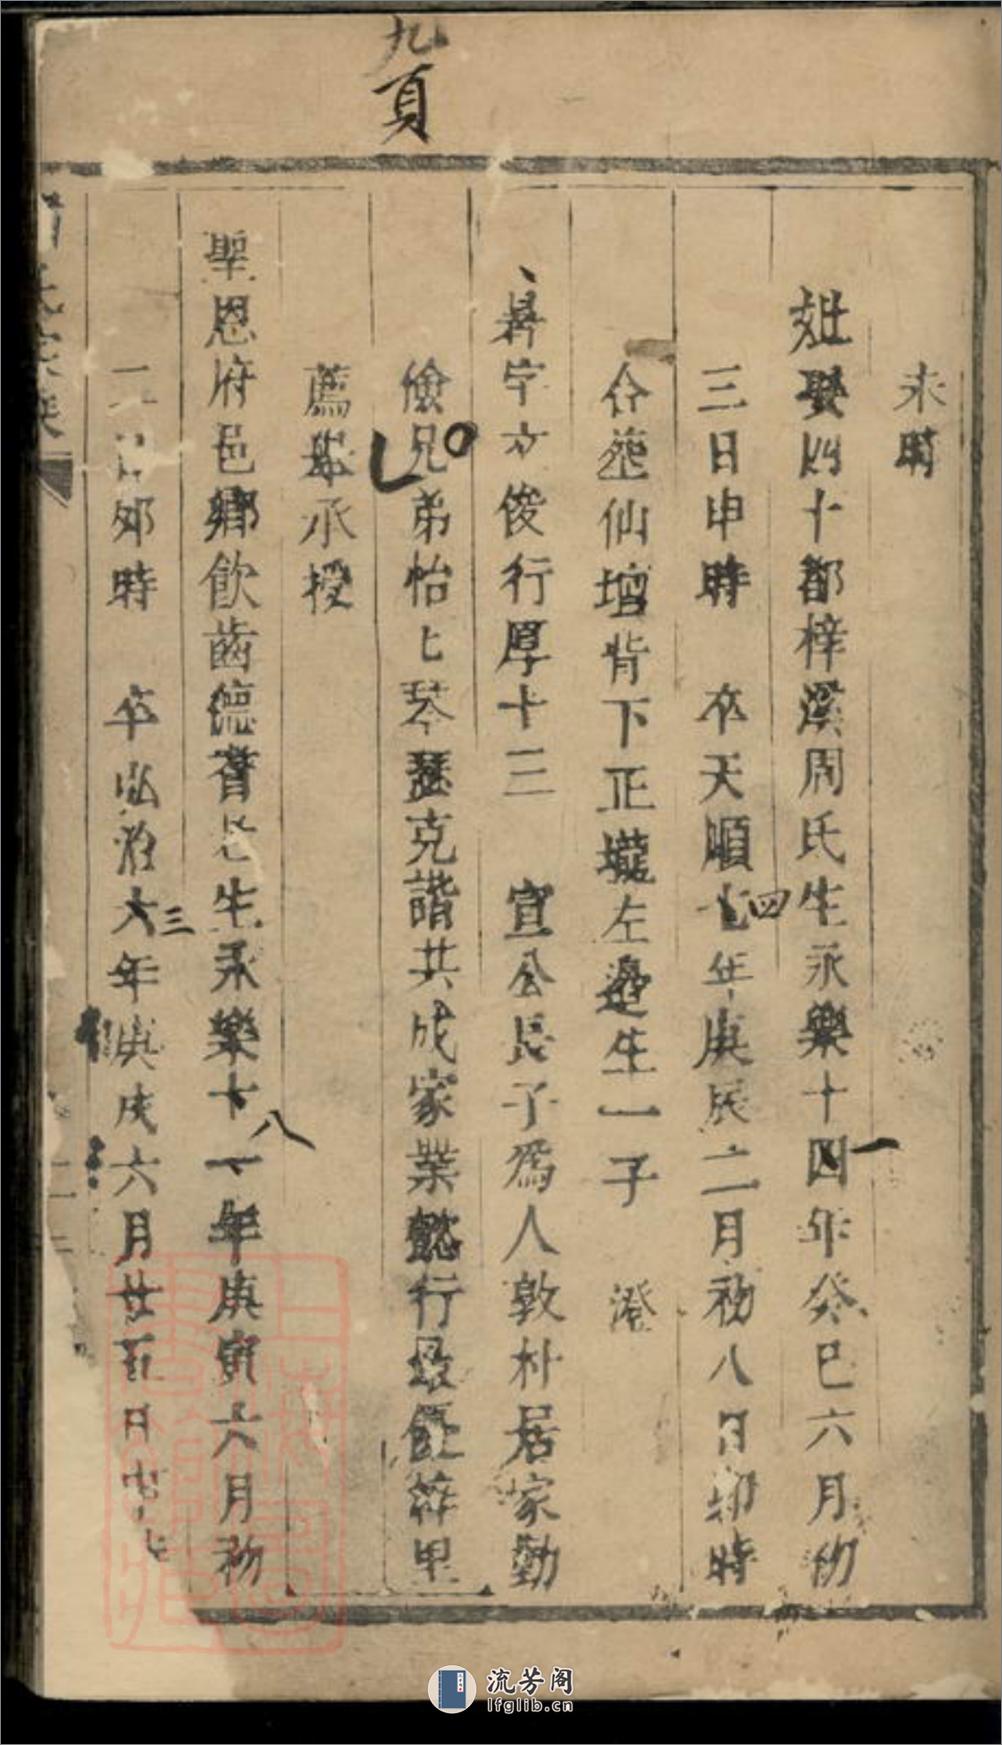 九頁
未時
妣娶四十都梓溪周氏生永樂十四年癸巳六月初
一
三日申時 卒天順七年庚辰二月初八日卯時
四
合塟仙壇背下正壠左邉生一子 澄
昇字文俊行厚十三 宣公長子爲人敦朴居家勤
儉兄弟怡匕琴瑟克諧共成家業懿行
薦舉承授
聖恩府邑鄉飲齒德耆老生永樂十一年庚寅六月初
八
二日卯時 卒弘治六年庚戌六月廿五日
三
氏宗
流芳阁
lfglib.cn